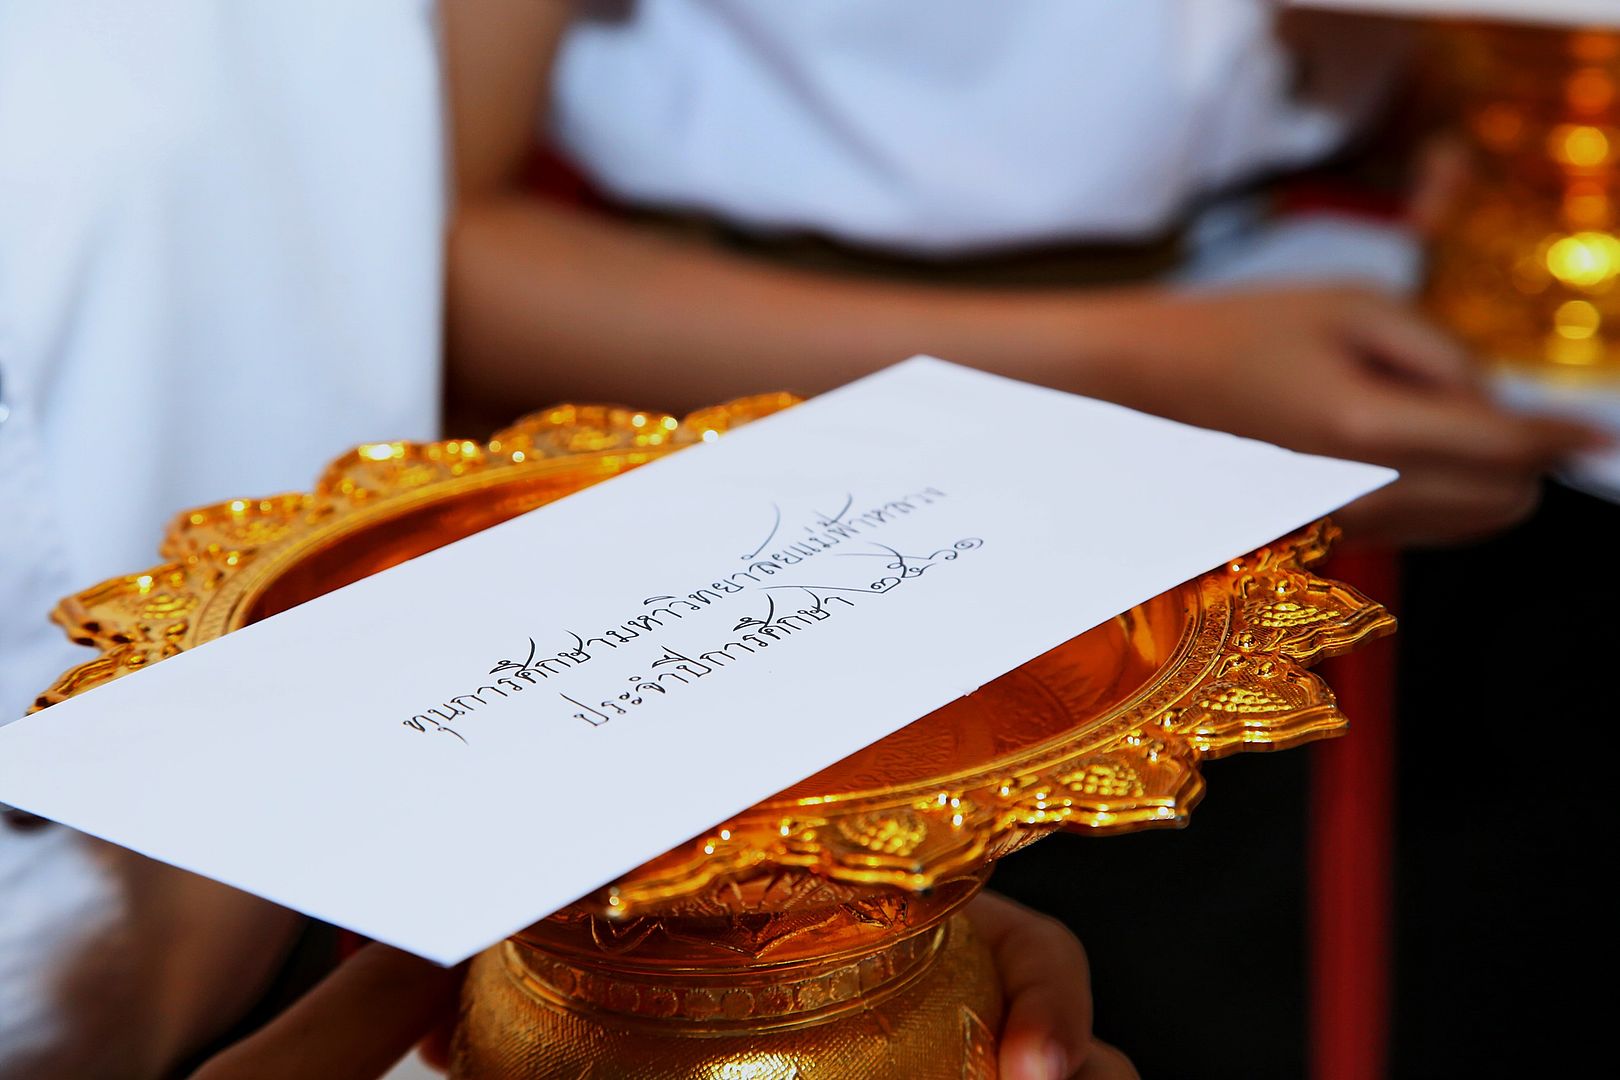 ทุนการศึกษามหาวิทยาลัยแม่ฟ้าหลวง
ประจำปีการศึกษา ๒๕๖๑